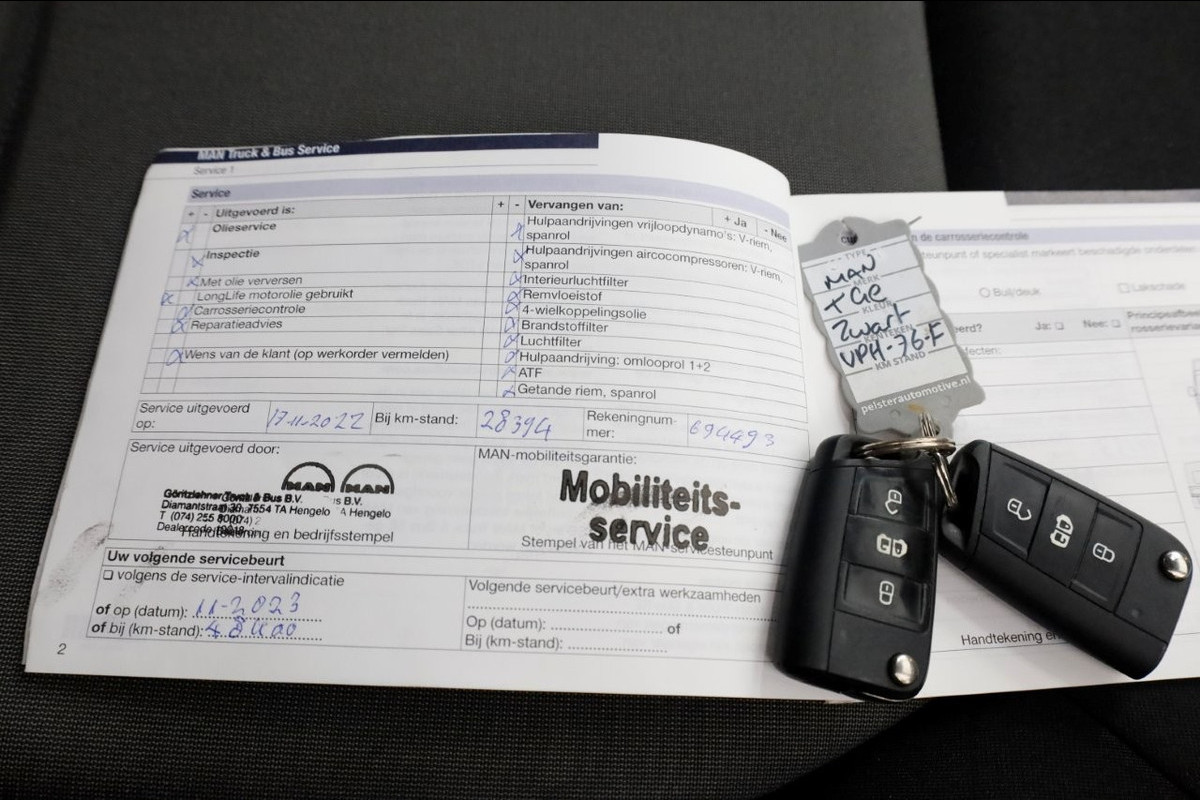 MAN Truck & Bus Service
Service 1
Service
+ - Uitgevoerd is:
Olieservice
Inspectie
Met olie verversen
LongLife motorolie gebruikt
Carrosseriecontrole
Reparatieadvies
Wens van de klant (op werkorder vermelden)
+ - Vervangen van: + Ja - Nee
Hulpaandrijvingen vrijloopdynamo's: V-riem,
spanrol
Hulpaandrijvingen aircocompressoren: V-riem,
spanrol
Interieurluchtfilter
Remvloeistof
4-wielkoppelingsolie
Brandstoffilter
Luchtfilter
Hulpaandrijving: omlooprol 1+2
ATF
Getande riem, spanrol
Service uitgevoerd
op: 17-11-2022 Bij km-stand: 28394 Rekeningnum-
mer: 694493
Service uitgevoerd door:
MAN MAN
Göritzlehner Truck & Bus B.V. s B.V.
Diamantstraat 30, 7554 TA Hengelo A Hengelo
T (074) 255 8000
Dealercode
Handtekening en bedrijfsstempel
MAN-mobiliteitsgarantie:
Mobiliteits-
service
Stempel van het MAN-servicesteunpunt
Uw volgende servicebeurt
volgens de service-intervalindicatie
of op (datum): 11-2023
of bij (km-stand):
Volgende servicebeurt/extra werkzaamheden
Op (datum): of
Bij (km-stand):
2
TYPE
MAN
MERK
TGE
KLEUR
Zwart
KENTEKEN
VPH-76-F
KM STAND
pelsterautomotive.nl
n de carrosseriecontrole
teunpunt of specialist markeert beschadigde onderdelen
Buil/deuk Lakschade
erd? Ja: Nee:
fecten:
Handtekening en